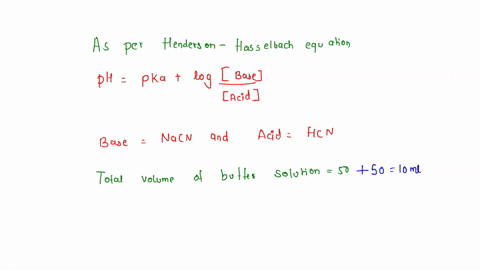 As per Henderson - Hasselbach equation
pH = pKa + log [Base]
[Acid]
Base = NaCN and Acid = HCN
Total volume of buffer solution = 50 + 50 = 10 ml